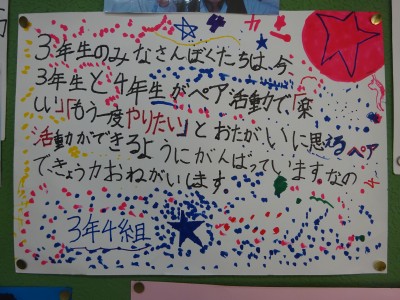 3年生のみなさんぼくたちは、今、
3年生と4年生がペア活動で「楽
しい」「もう一度やりたい」とおたがいに思えるペア
活動ができるようにがんばっていますなの
できょう力おねがいします
3年4組